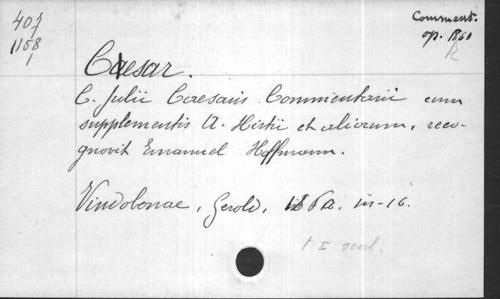 407
1158
1
Comment.
op. 1860
R
Caesar.
C. Julii Caesaris Commentarii cum
supplementis A. Hirtii et aliorum, reco-
gnovit Emanuel Hoffmann.
Vindobonae, Gerold, in-16.
t. I seul.